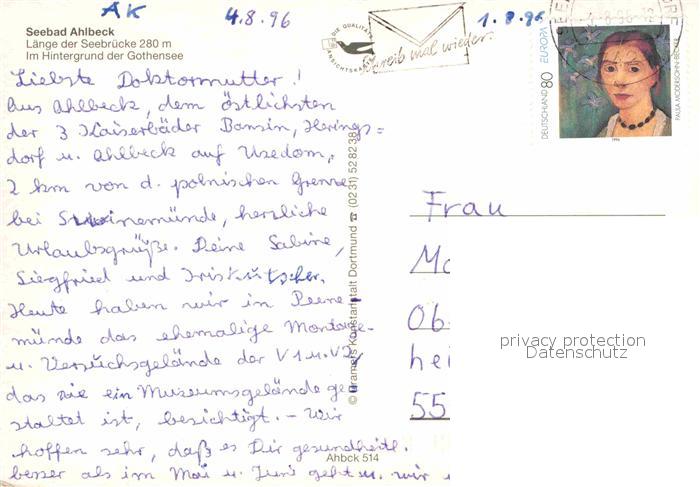 AK
4.8.96
1.8.96
Seebad Ahlbeck
Länge der Seebrücke 280 m
Im Hintergrund der Gothensee
DIE QUALITÄTS
ANSICHTSKARTE
Schreib mal wieder.
DEUTSCHLAND 80
EUROPA
PAULA MODERSOHN-BECKER
1996
Liebste Doktormutter!
Aus Ahlbeck, dem östlichsten
der 3 Kaiserbäder Bansin, Herings=
dorf u. Ahlbeck auf Usedom,
2 km von d. polnischen Grenze
bei Swinemünde, herzliche
Urlaubsgrüße. Deine Sabine,
Siegfried und Iris
Heute haben wir in Peene
münde das ehemalige Montage-
u. Versuchsgelände der V1 u. V2,
das wie ein Museumsgelände ge
staltet ist, besichtigt. – Wir
hoffen sehr, daß es Dir gesundheitl.
besser als im Mai u. Juni geht u. wir
© Kramers Kunstanstalt Dortmund ☎ (0231) 528238
Ahbck 514
Frau
Ob
hei
55
privacy protection
Datenschutz